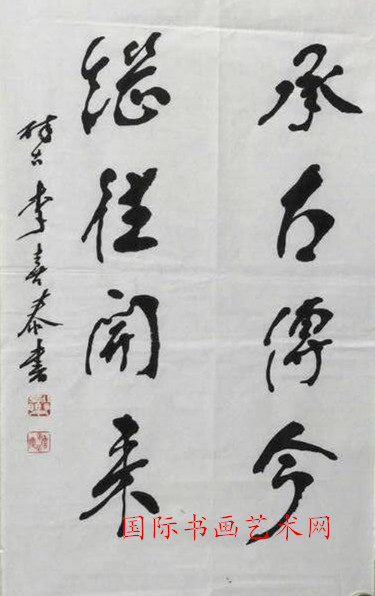 承古傳今
繼往開来
李喜泰书
国际书画艺术网